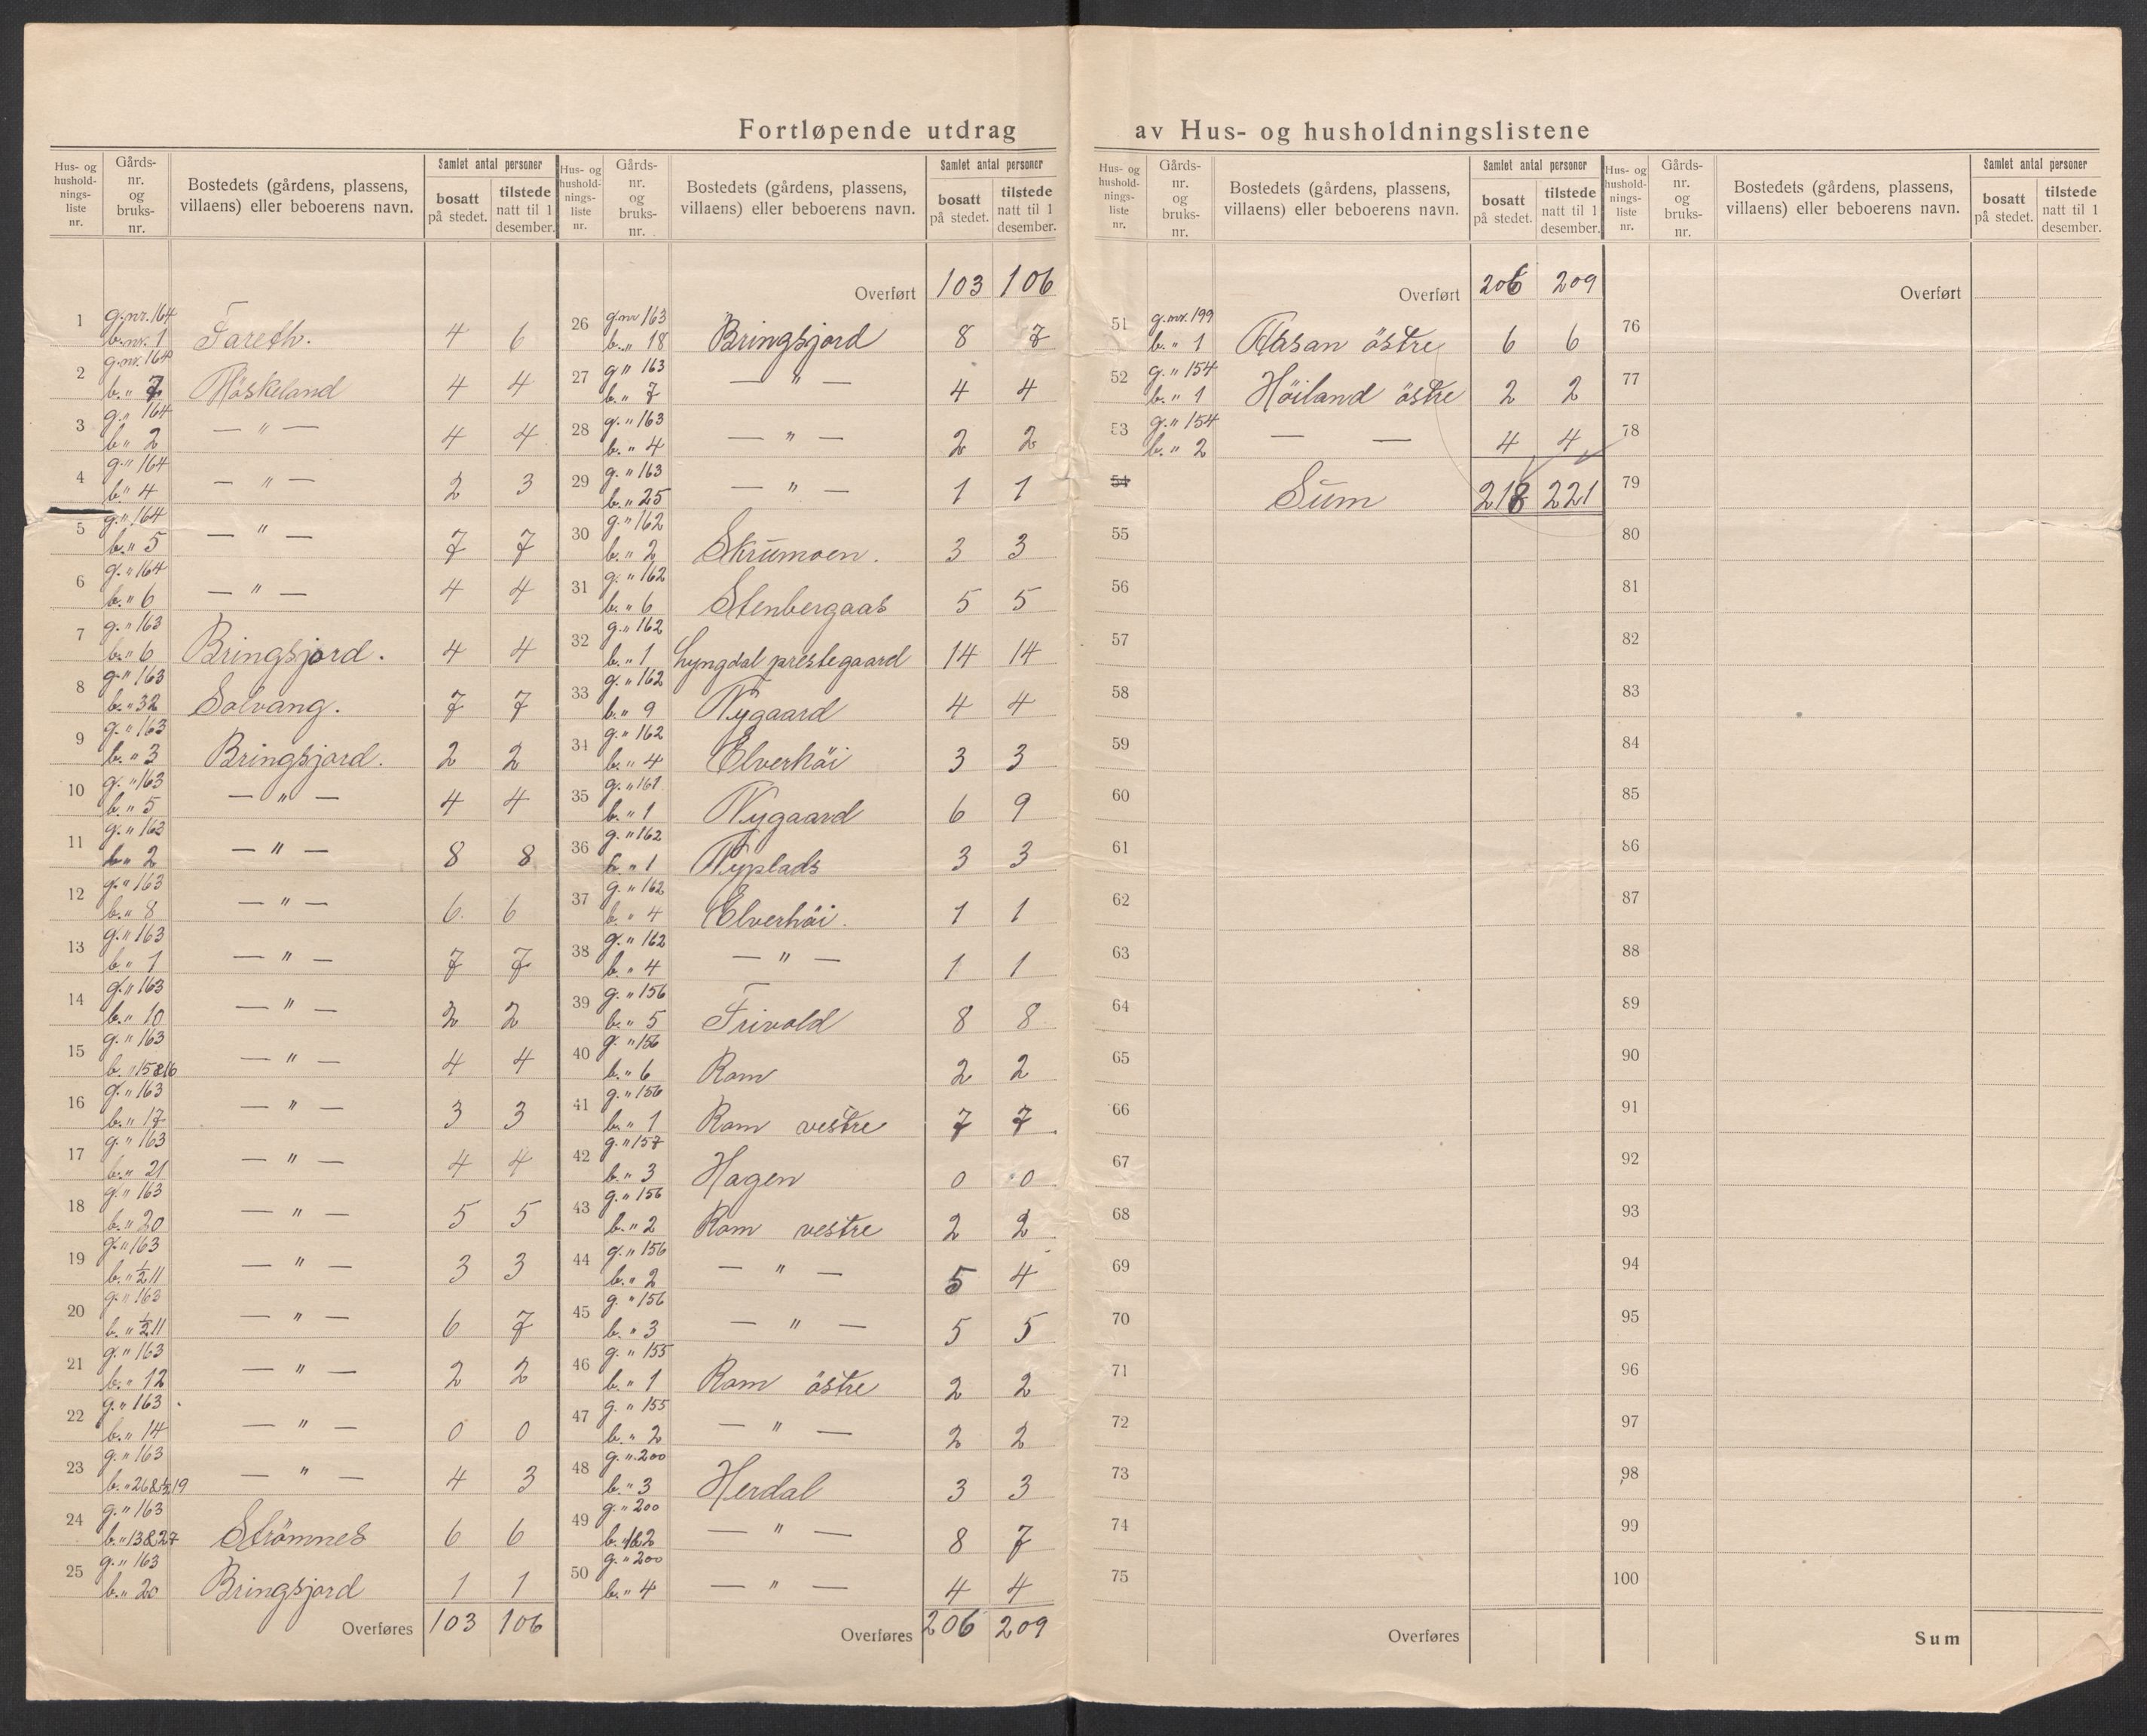 Fortløpende utdrag av Hus- og husholdningslistene
Hus- og husholdnings-liste nr. | Gårds-nr. og bruks-nr. | Bostedets (gårdens, plassens, villaens) eller beboerens navn. | Samlet antal personer bosatt på stedet. | tilstede natt til 1 desember.
1 g.nr. 164 b.nr. 1 Fareth. 4 6
2 g.nr. 164 b. " 7 Höskeland 4 4
3 g. " 164 b. " 2 — " — 4 4
4 g. " 164 b. " 4 — " — 2 3
5 g. " 164 b. " 5 — " — 7 7
6 g. " 164 b. " 6 — " — 4 4
7 g. " 163 b. " 6 Bringsjord. 4 4
8 g. " 163 b. " 32 Solvang. 7 7
9 g. " 163 b. " 3 Bringsjord. 2 2
10 g. " 163 b. " 5 — " — 4 4
11 g. " 163 b. " 2 — " — 8 8
12 g. " 163 b. " 8 — " — 6 6
13 g. " 163 b. " 1 — " — 7 7
14 g. " 163 b. " 10 — " — 2 2
15 g. " 163 b. " 15&16 — " — 4 4
16 g. " 163 b. " 17 — " — 3 3
17 g. " 163 b. " 21 — " — 4 4
18 g. " 163 b. " 20 — " — 5 5
19 g. " 163 b. " ½11 — " — 3 3
20 g. " 163 b. " ½11 — " — 6 7
21 g. " 163 b. " 12 — " — 2 2
22 g. " 163 b. " 14 — " — 0 0
23 g. " 163 b. " 26&½19 — " — 4 3
24 g. " 163 b. " 13&27 Strömnes 6 6
25 g. " 163 b. " 20 Bringsjord 1 1
Overføres 103 106
Hus- og husholdnings-liste nr. | Gårds-nr. og bruks-nr. | Bostedets (gårdens, plassens, villaens) eller beboerens navn. | Samlet antal personer bosatt på stedet. | tilstede natt til 1 desember.
Overført 103 106
26 g.nr 163 b. " 18 Bringsjord 8 7
27 g " 163 b. " 7 — " — 4 4
28 g. " 163 b. " 4 — " — 2 2
29 g. " 163 b. " 25 — " — 1 1
30 g. " 162 b. " 2 Skrumoen. 3 3
31 g. " 162 b. " 6 Stenbergaas 5 5
32 g. " 162 b. " 1 Lyngdal prestegaard 14 14
33 g. " 162 b. " 9 Nygaard 4 4
34 g. " 162 b. " 4 Elverhöi 3 3
35 g. " 161 b. " 1 Nygaard 6 9
36 g. " 162 b. " 1 Nyplads 3 3
37 g. " 162 b. " 4 Elverhöi. 1 1
38 g. " 162 b. " 4 — " — 1 1
39 g. " 156 b. " 5 Trivold 8 8
40 g. " 156 b. " 6 Rom 2 2
41 g. " 156 b. " 1 Rom vestre 7 7
42 g. " 157 b. " 3 Hagen 0 0
43 g. " 156 b. " 2 Rom vestre 2 2
44 g. " 156 b. " 2 — " — 5 4
45 g. " 156 b. " 3 — " — 5 5
46 g. " 155 b. " 1 Rom östre 2 2
47 g. " 155 b. " 2 — " — 2 2
48 g. " 200 b. " 3 Herdal 3 3
49 g. " 200 b. " 1&2 — " — 8 7
50 g. " 200 b. " 4 — " — 4 4
Overføres 206 209
Hus- og husholdnings-liste nr. | Gårds-nr. og bruks-nr. | Bostedets (gårdens, plassens, villaens) eller beboerens navn. | Samlet antal personer bosatt på stedet. | tilstede natt til 1 desember.
Overført 206 209
51 g.nr. 199 b. " 1 Aasan östre 6 6
52 g. " 154 b. " 1 Höiland östre 2 2
53 g. " 154 b. " 2 — — 4 4
54 Sum 218 221
55
56
57
58
59
60
61
62
63
64
65
66
67
68
69
70
71
72
73
74
75
Overføres
Hus- og husholdnings-liste nr. | Gårds-nr. og bruks-nr. | Bostedets (gårdens, plassens, villaens) eller beboerens navn. | Samlet antal personer bosatt på stedet. | tilstede natt til 1 desember.
Overført
76
77
78
79
80
81
82
83
84
85
86
87
88
89
90
91
92
93
94
95
96
97
98
99
100
Sum